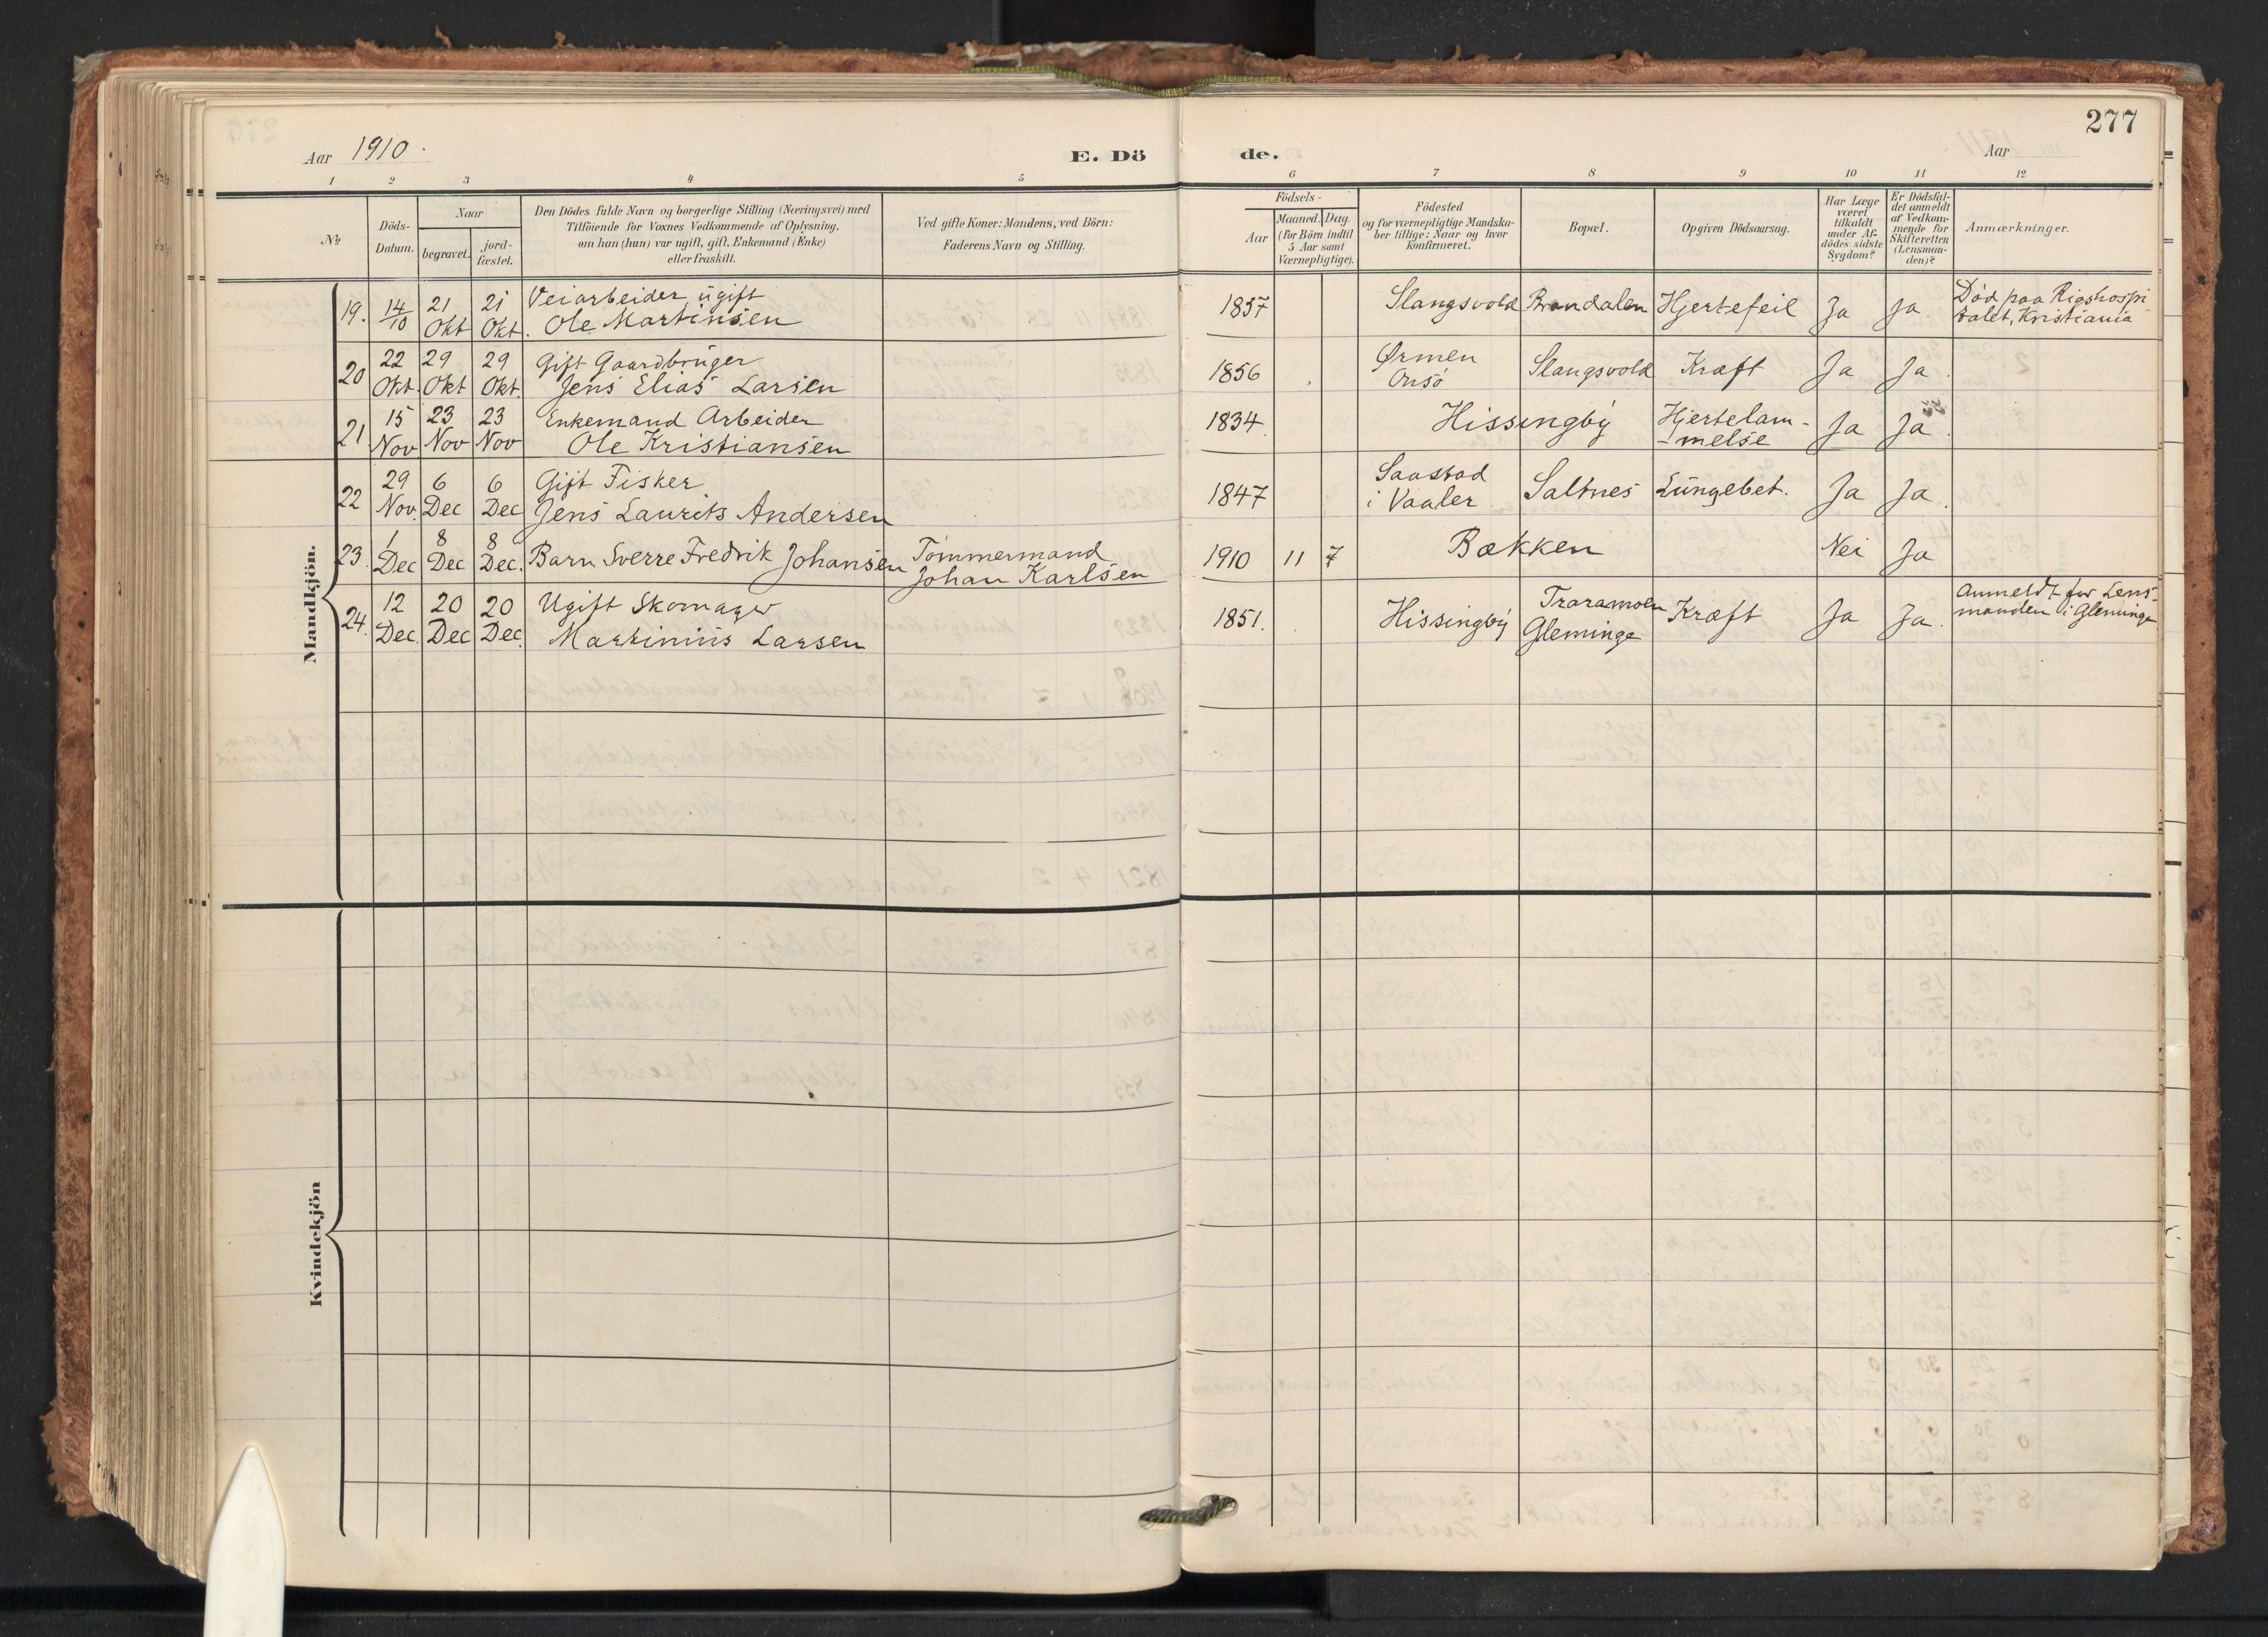 277
Aar 1910.
E. Dö
de.
Aar
1 2 3 4 5
6 7 8 9 10 11 12
No
Döds-
Datum.
Naar
begravet.
jord-
fæstet.
Den Dödes fulde Navn og borgerlige Stilling (Næringsvei) med
Tilföiende for Voxnes Vedkommende af Oplysning,
om han (hun) var ugift, gift, Enkemand (Enke)
eller fraskilt.
Ved gifte Koner: Mandens, ved Börn:
Faderens Navn og Stilling.
Födsels-
Aar
Maaned.
Dag.
(for Börn indtil
5 Aar samt
Værnepligtige).
Födested
og for værnepligtige Mandska-
ber tillige: Naar og hvor
konfirmeret.
Bopæl.
Opgiven Dödsaarsag.
Har Læge
været
tilkaldt
under Af-
dödes sidste
Sygdom?
Er Dödsfal-
det anmeldt
af Vedkom-
mende for
Skifteretten
(Lensman-
den)?
Anmærkninger.
Mandkjön.
19. 14/10 21 Okt 21 Okt. Veiarbeider, ugift
Ole Martinsen
1837 Slangsvold Brandalen Hjertefeil Ja Ja Död paa Rigshospi
talet, Kristiania
20 22 Okt. 29 Okt 29 Okt. Gift Gaardbruger
Jens Elias Larsen
1856 Ørmen
Onsö Slangsvold Kræft Ja Ja.
21 15 Nov 23 Nov 23 Nov Enkemand Arbeider
Ole Kristiansen
1834. Hissingby Hjertelam-
-melse Ja Ja.
22 29 Nov. 6 Dec 6 Dec Gift Fisker
Jens Laurits Andersen
1847 Saastad
i Vaaler Saltnes Lungebet. Ja Ja.
23. 1 Dec 8 Dec 8 Dec. Barn Sverre Fredrik Johansen Tömmermand
Johan Karlsen
1910 11 7 Bækken Nei Ja
24. 12 Dec. 20 Dec 20 Dec. Ugift Skomager
Martinius Larsen
1851. Hissingby
Gleminge Kræft Ja Ja. Anmeldt for Lens-
manden i Gleminge
Kvindekjön